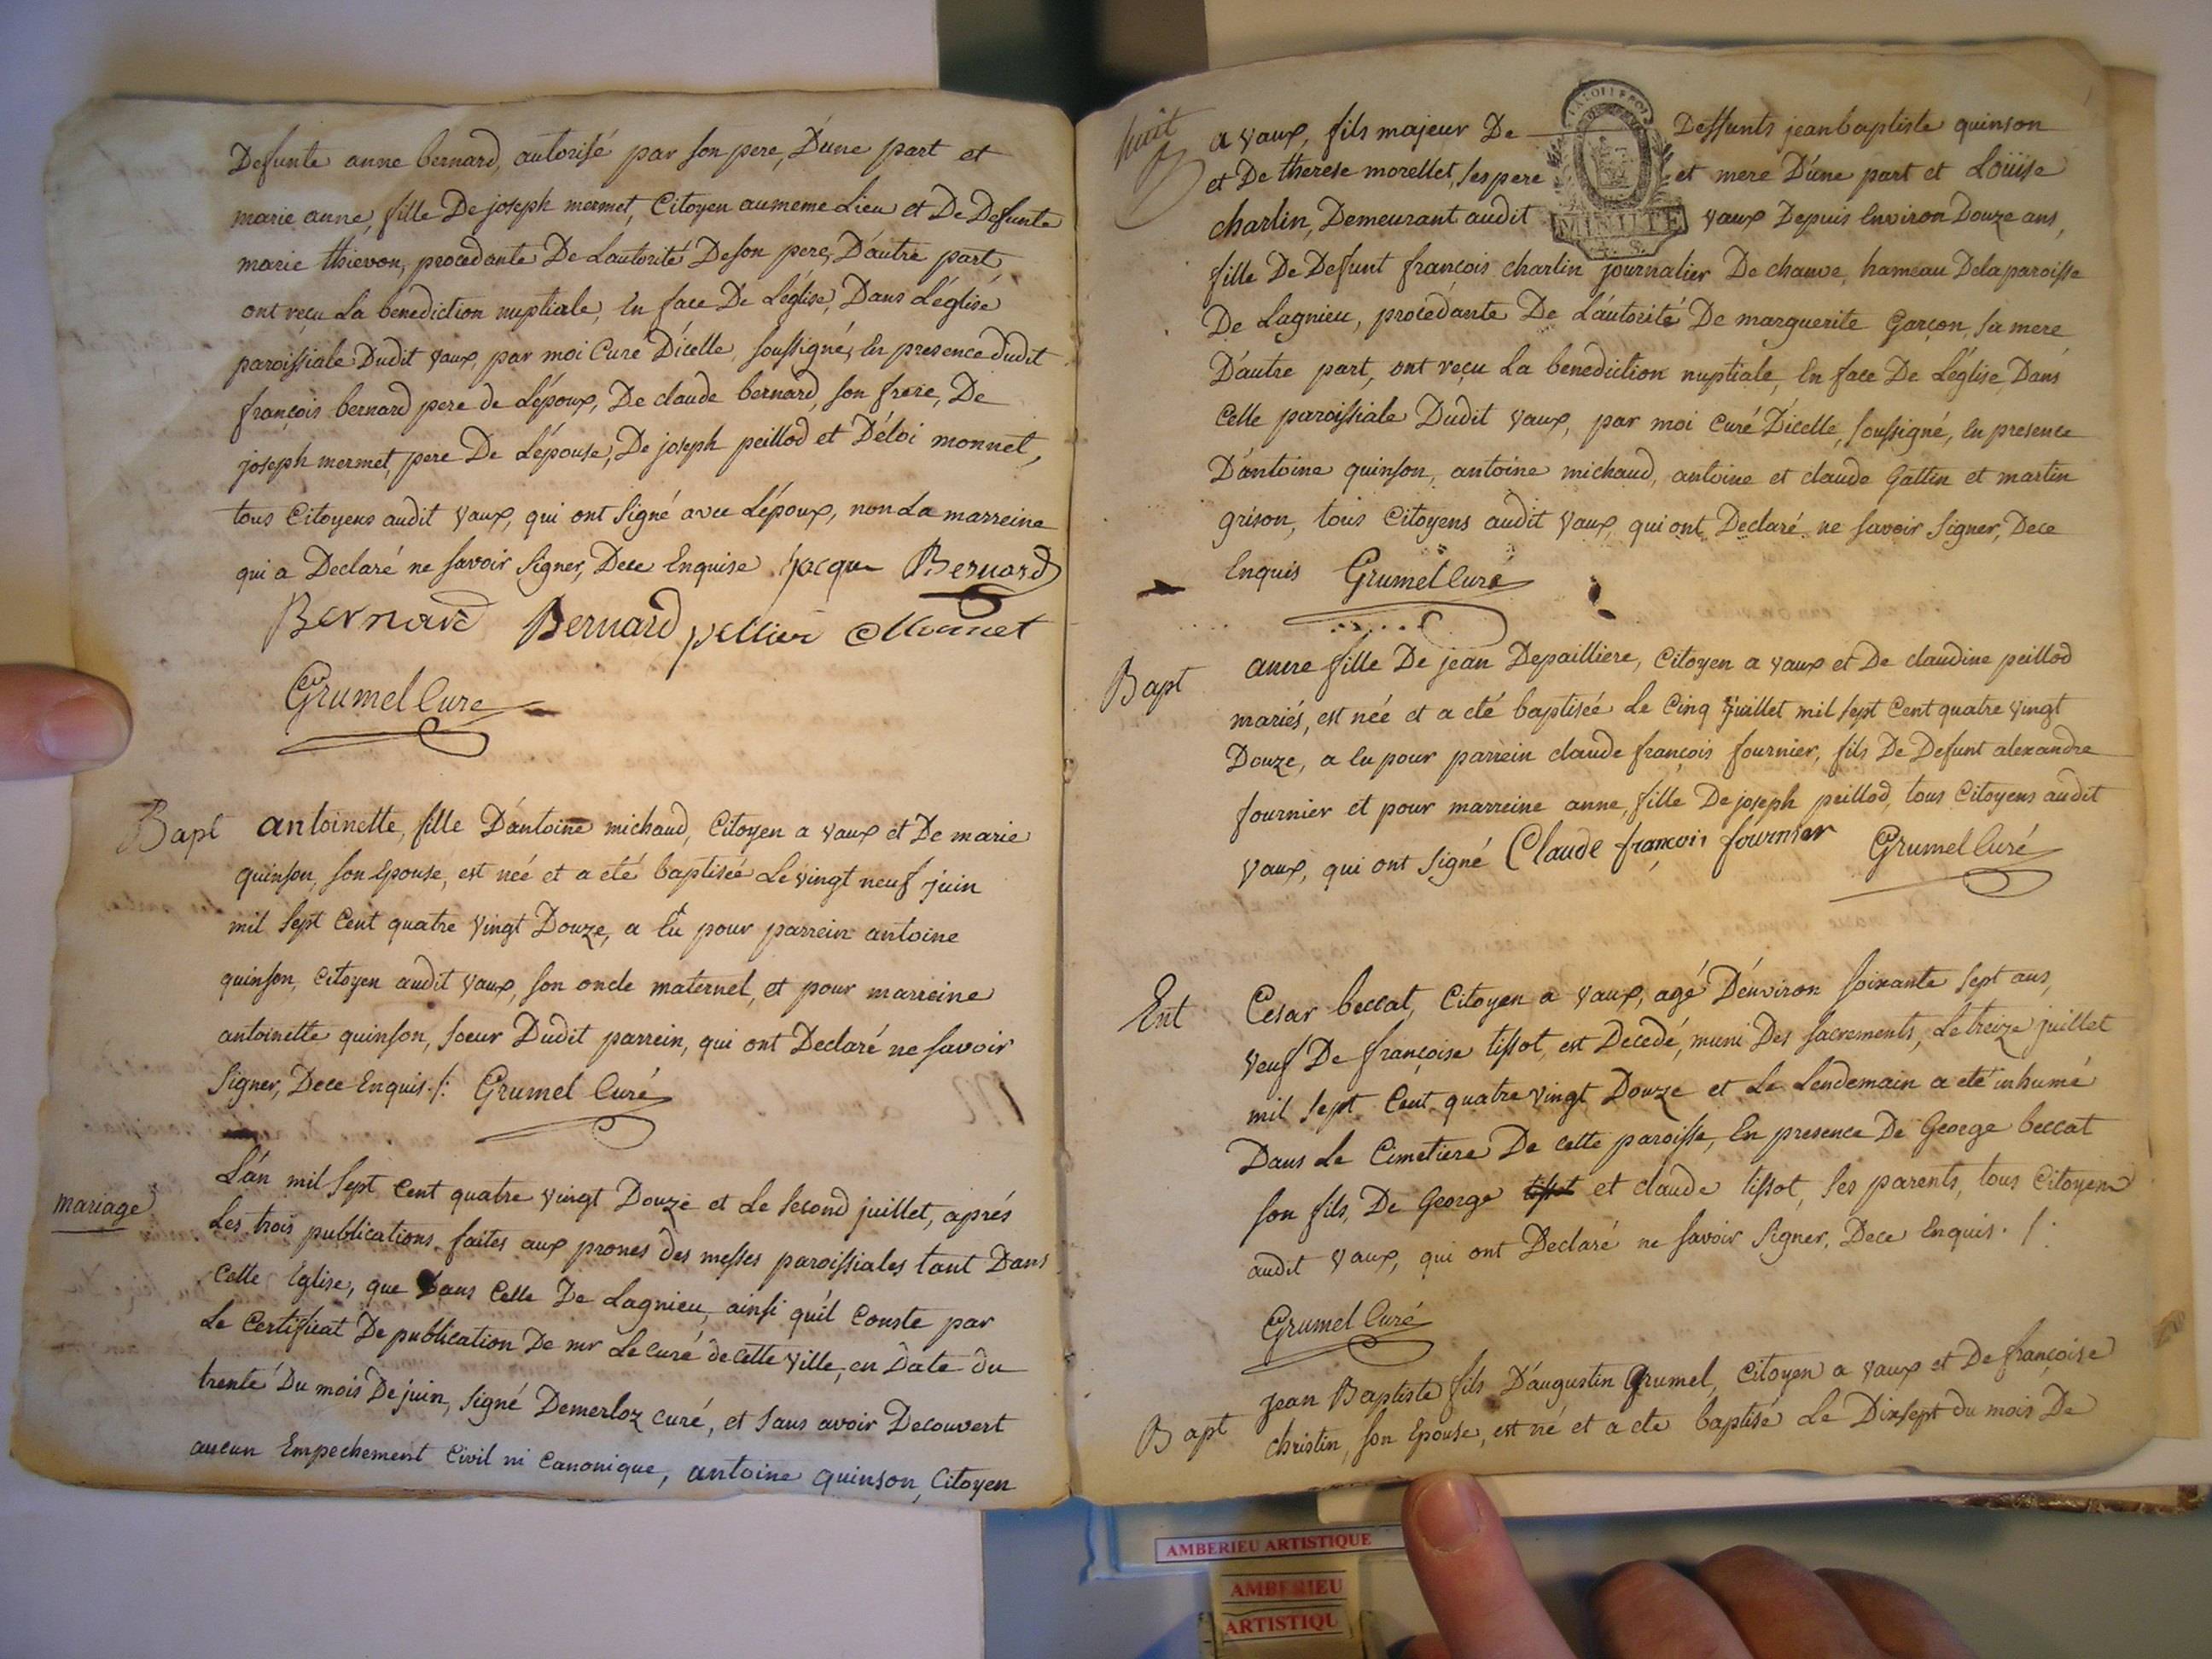 Defunte anne bernard, autorisé par son pere, D'une part et
marie anne, fille De joseph mermet, Citoyen au meme Lieu et De Defunte
marie thievon, procedante De L'autorité De son pere, D'autre part
ont reçu La benediction nuptiale, En face De L'église, Dans L'église
paroissiale Dudit Vaux, par moi Curé D'icelle, soussigné, En presence dudit
françois bernard pere de L'époux, De claude bernard, son frere, De
joseph mermet, pere De L'épouse, De joseph peillod et D'éloi monnet,
tous Citoyens audit Vaux, qui ont Signé avec L'époux, non La marreine
qui a Declaré ne savoir Signer, De ce Enquise. jacque Bernard
Bernard Bernard pellier Monnet
Grumel Curé
Bapt antoinette, fille D'antoine michaud, Citoyen a Vaux et De marie
quinson, son Epouse, est née et a eté baptisée Le vingt neuf juin
mil Sept Cent quatre Vingt Douze, a Eu pour parrein antoine
quinson, Citoyen audit Vaux, son oncle maternel, et pour marreine
antoinette quinson, soeur Dudit parrein, qui ont Declaré ne savoir
Signer, De ce Enquis ./: Grumel Curé
mariage
L'an mil Sept Cent quatre Vingt Douze et Le second juillet, aprés
Les trois publications faites aux prones des messes paroissiales tant Dans
Cette Eglise, que Dans Celle De Lagnieu, ainsi qu'il Conste par
Le Certificat De publication De mr Le curé de cette Ville, en Date du
trente Du mois De juin, signé Demerloz curé, et sans avoir Decouvert
aucun Empechement Civil ni Canonique, antoine quinson, Citoyen
huit
a Vaux, fils majeur De Deffunts jean baptiste quinson
LA LOI ET LE ROI
et De therese morellet, ses pere et mere D'une part et Loüise
charlin, Demeurant audit Vaux Depuis Environ Douze ans,
MINUTE
fille De Defunt françois charlin journalier De chauve, hameau De la paroisse
De Lagnieu, procédante De L'autorité De marguerite Garçon, sa mere
D'autre part, ont reçu La benediction nuptiale, En face De L'église, Dans
Celle paroissiale Dudit Vaux, par moi curé D'icelle, soussigné, En presence
D'antoine quinson, antoine michaud, antoine et claude Gattin et martin
grison, tous Citoyens audit Vaux, qui ont Declaré ne savoir Signer, De ce
Enquis Grumel Curé
Bapt
anne fille De jean Depailliere, Citoyen a Vaux et De claudine peillod
mariés, est née et a eté baptisée Le Cinq juillet mil sept Cent quatre Vingt
Douze, a Eu pour parrein claude françois fournier, fils De Defunt alexandre
fournier et pour marreine anne, fille De joseph peillod, tous Citoyens audit
Vaux, qui ont Signé Claude françois fournier Grumel Curé
Ent Cesar beccat, Citoyen a Vaux, agé D'environ soixante Sept ans,
Veuf De françoise tissot, est Decedé, muni Des sacrements, Le treize juillet
mil Sept Cent quatre Vingt Douze et Le Lendemain a eté inhumé
Dans Le Cimetiere De cette paroisse, En presence De George beccat
son fils, De George tissot et claude tissot, ses parents, tous Citoyens
audit Vaux, qui ont Declaré ne savoir Signer, De ce Enquis ./:
Grumel Curé
Jean Baptiste fils D'augustin Grumel, Citoyen a Vaux et De françoise
Bapt christin, son Epouse, est né et a eté baptisé Le Dix sept du mois De
AMBERIEU ARTISTIQUE
AMBERIEU
ARTISTIQU